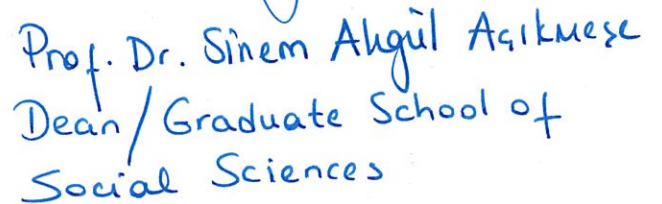 Prof. Dr. Sinem Akgül Açıkmeşe
Dean/Graduate School of
Social Sciences